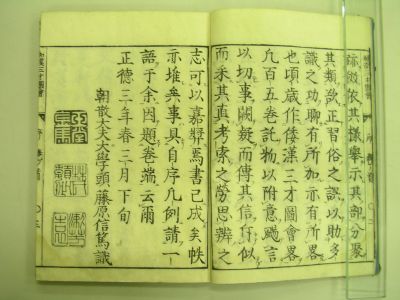 依其樣擧示其部分聚
其類欲正習俗之謬以助多
識之功聊有所加亦有所畧
也頃歲作倭漢三才圖會畧
凡百五卷託物以附意飜言
以切事闕疑而傳其信斥似
而采其眞考索之勞思辨之
志可以嘉奬焉書已成矣帙
亦堆矣事具自序凡例請一
語于余因題卷端云爾
正德三年春三月下旬
朝散大夫大學頭藤原信篤識